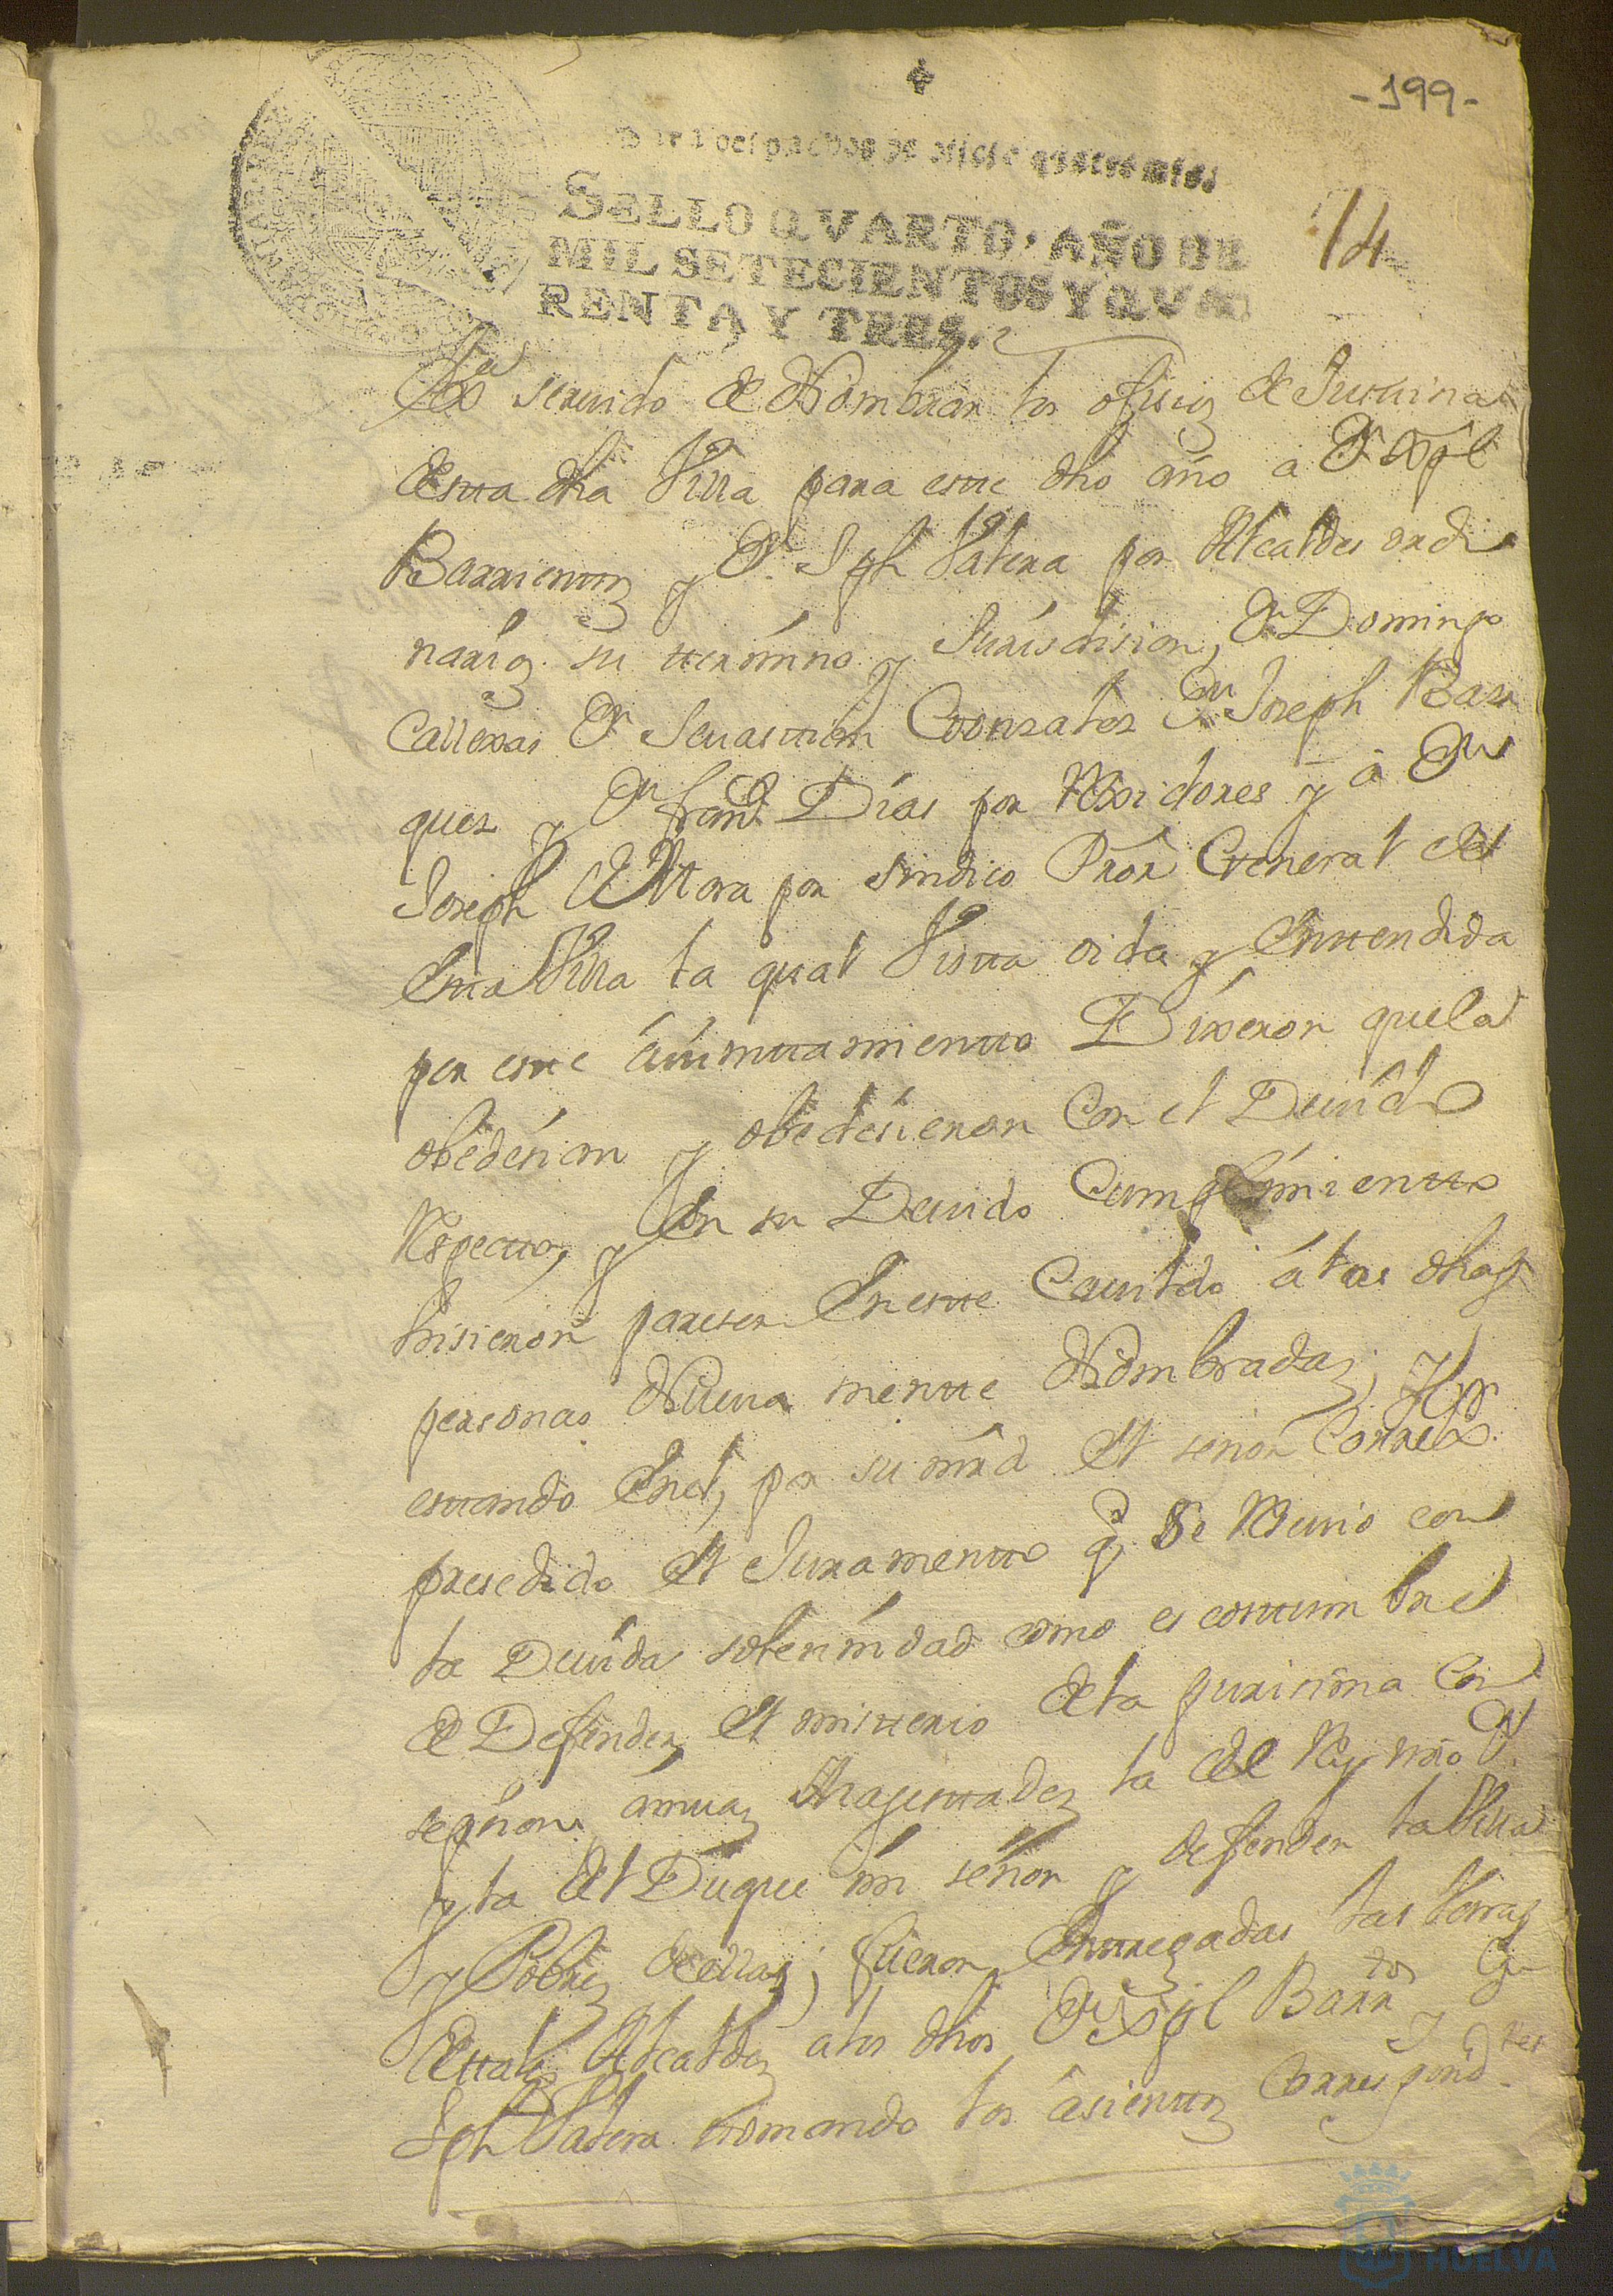 -199-
Para despachos de oficio quatro mrs.
SELLO QVARTO, AÑO DE
MIL SETECIENTOS Y QVA
RENTA Y TRES.
14
servido de Nombrar los ofisios de Justisia
desta dha Villa para este dho año a Dn Xptl
Barrientos y Dn Jph Valera por Alcaldes ordi
narios su termino y Jurisdision, Dn Domingo
Callexas Dn Sevastian Gonzales Dn Joseph Bas
ques y Dn franco Dias por Rexidores y a Dn
Joseph de Mora por sindico Pror General de
esta Villa la qual Vista oida y Entendida
por este aiuntamiento Dixeron que la
obedesian y obedesieron Con el Devido
Respecto, y En su Devido Cumplimiento
hisieron pareser En este Cavildo á las dhas
personas Nueva mente Nombradas, Y
estando En el, por su mrd El señor Correxr
presedido El Juramento q Se Resivio con
la Devida solemnidad como es costumbre
de Defender El misterio de la purisima Con
sepsion, amvas Magestades la del Rey nro Sr
y la del Duque mi señor y defender la Villa
y Pobres de ella; fueron Entregadas las Varas
de tales Alcaldes a los dhos Dn Xptl Barrdos y Dn
Jph Valera tomando los asientos Correspondtes
HUELVA